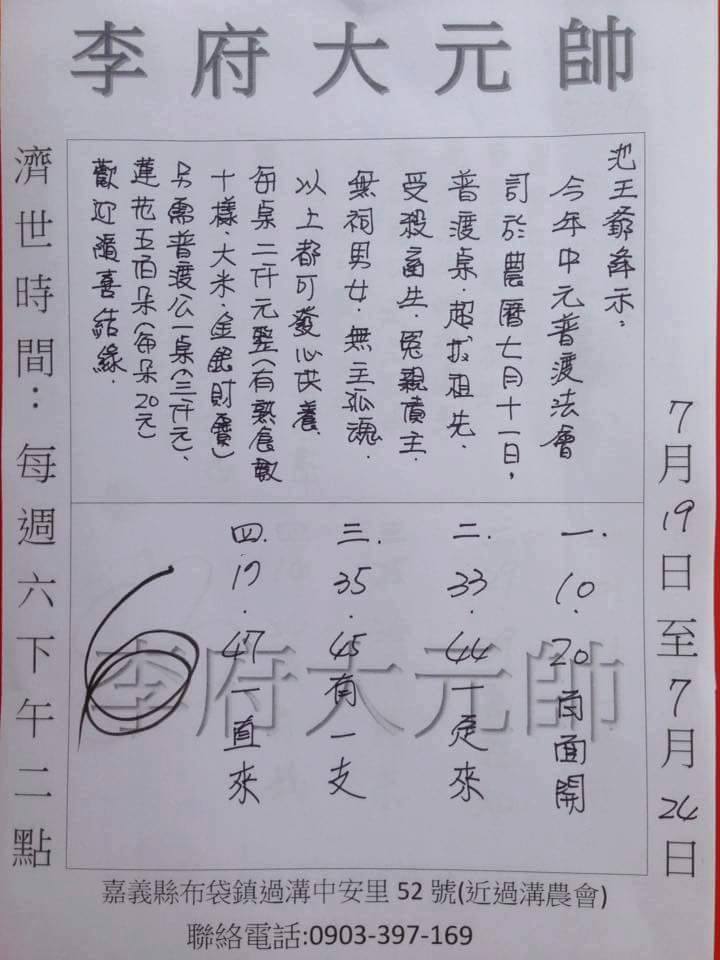 李府大元帥
7月19日至7月24日
池王爺降示：
今年中元普渡法會
訂於農曆七月十一日，
普渡桌．超拔祖先．
受殺畜生．冤親債主．
無祠男女．無主孤魂．
以上都可發心供養．
每桌二仟元整(有熟食數
十樣．大米．金銀財寶)
另需普渡公一桌(三仟元)、
蓮花五佰朵(每朵20元)
歡迎隨喜結緣．
一．10．20兩面開
二．33．44一定來
三．35．45有一支
四．17．47一直來
李府大元帥
濟世時間：每週六下午二點
嘉義縣布袋鎮過溝中安里52號(近過溝農會)
聯絡電話:0903-397-169